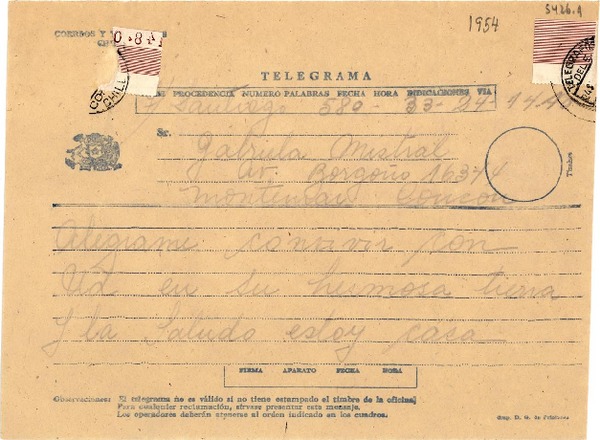 1954
5426.A
CORREOS Y
TELEGRAMA
PROCEDENCIA NUMERO PALABRAS FECHA HORA INDICACIONES VIA
Santiago 580 - 33 - 24 - 14.40
Sr.
Gabriela Mistral
Av. Borgoño 16374
Montemar Concon
Timbre
Alegrame convivir con
Ud en su hermosa tierra
y la saludo estoy casa
FIRMA APARATO FECHA HORA
Observaciones: El telegrama no es válido si no tiene estampado el timbre de la oficina.
Para cualquier reclamación, sírvase presentar este mensaje.
Los operadores deberán atenerse al orden indicado en los cuadros.